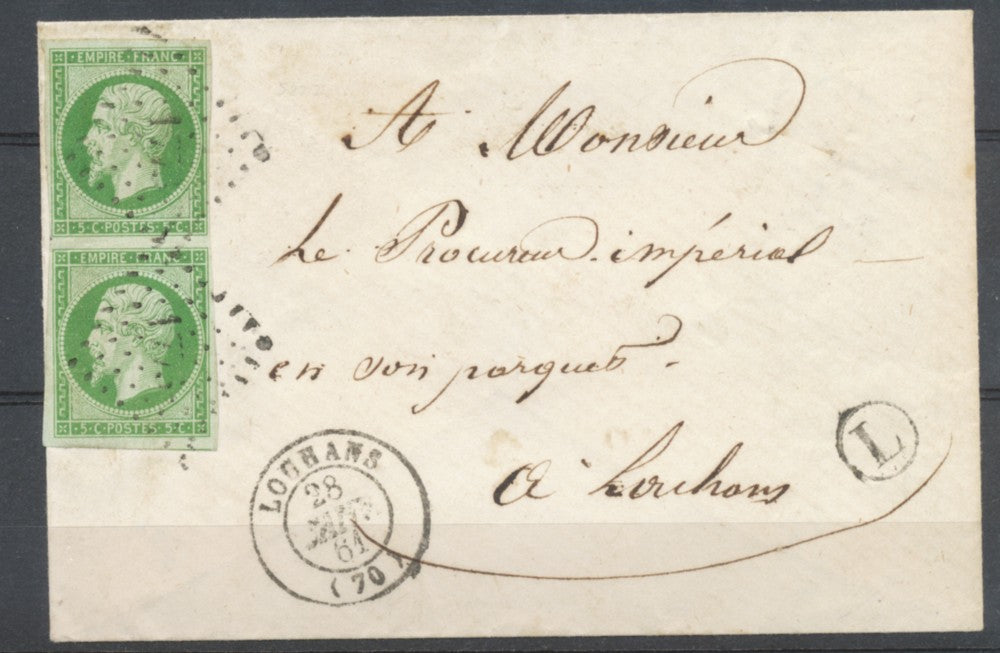 EMPIRE · FRANC
5 · C · POSTES · 5 · C
EMPIRE · FRANC
5 · C · POSTES · 5 · C
A Monsieur
Le Procureur impérial
en son parquet.
A Louhans
L
LOUHANS
28
61
(70)